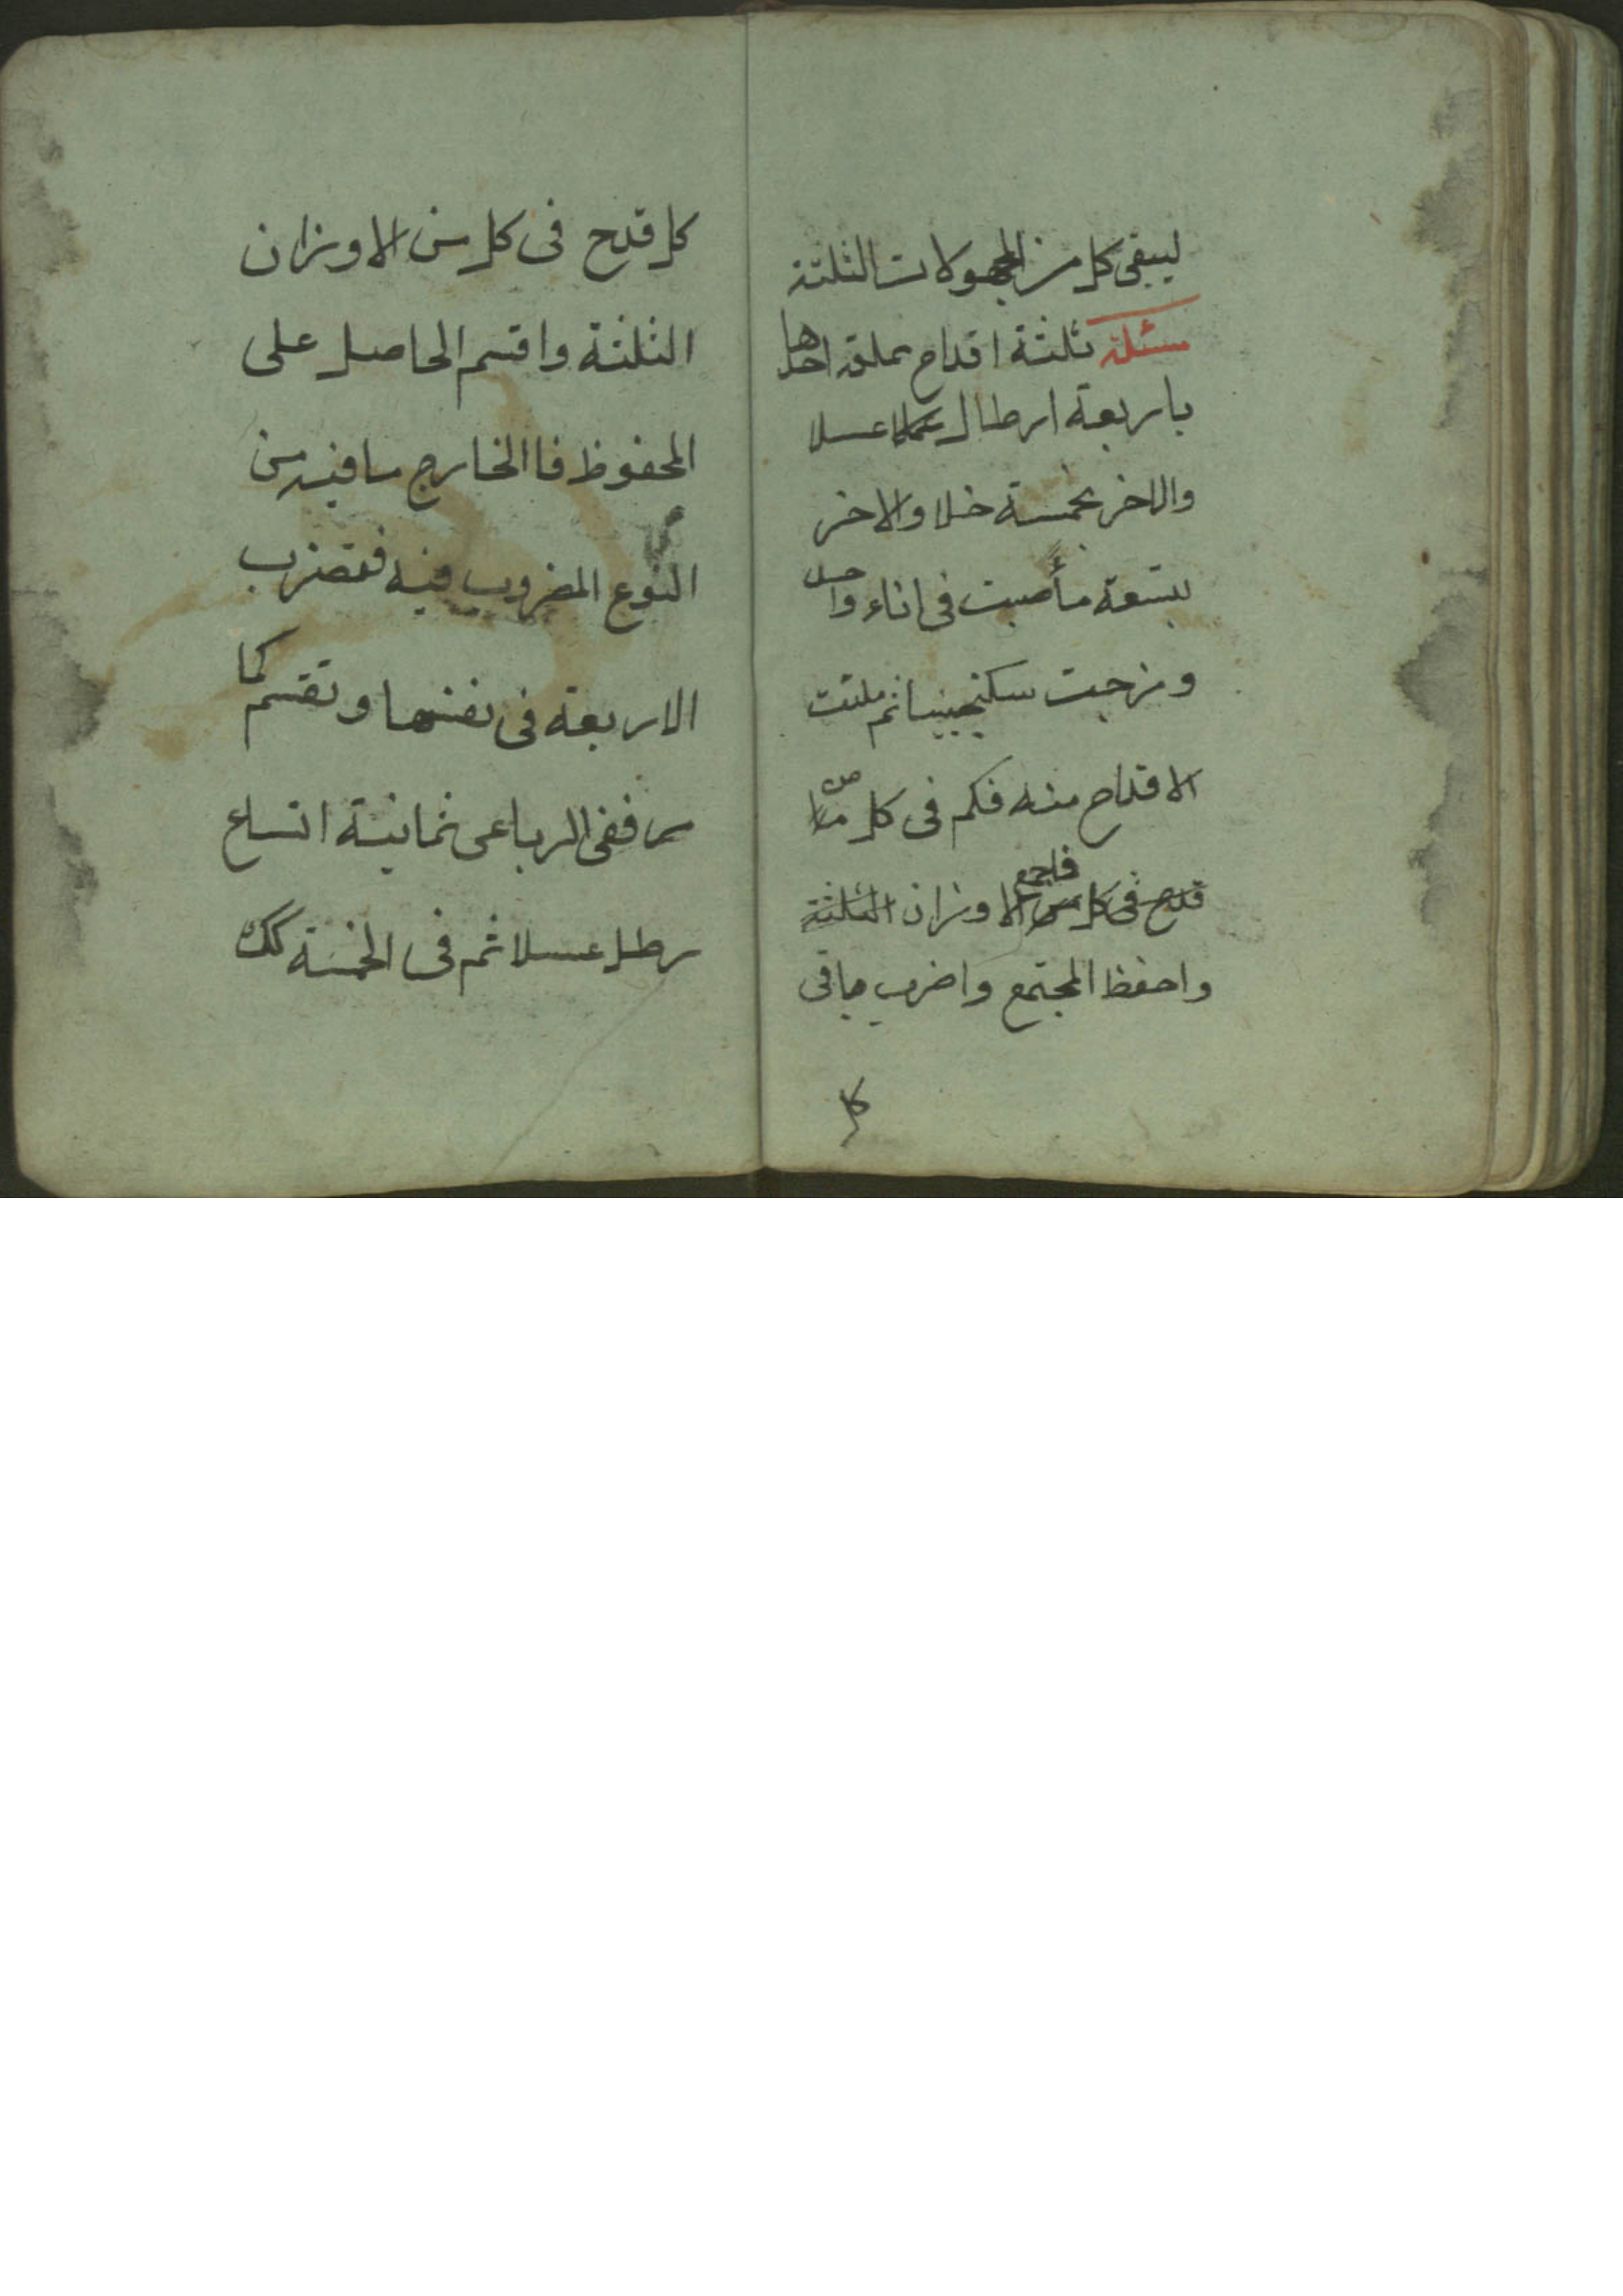 ليبقى كل من المجهولات الثلثة
مسئلة ثلثة اقداح مملوة احدها
باربعة ارطال عسلا
والاخر بخمسة خلا والاخر
بتسعة مأ صبت فى اناء واحد
ومزجت سكنجبينا ثم ملئت
الاقداح منه فكم فى كل من
قدح فى كل من فاجمع الاوزان الثلثة
واحفظ المجتمع واضرب مافى
كل
كل قدح فى كل من الاوزان
الثلثة واقسم الحاصل على
المحفوظ فاالخارج مافيه من
النوع المضروب فيه فتضرب
الاربعة فى نفسها وتقسم كما
مر ففى الرباعى ثمانية اتساع
رطل عسلا ثم فى الخمسة كك